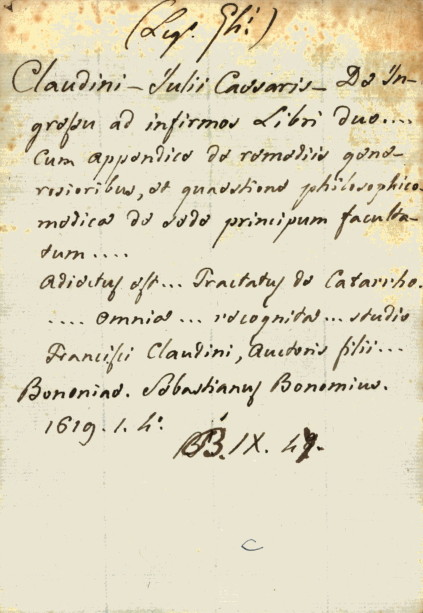 (Leg. Ghi:)
Claudini - Iulii Caesaris - De In-
gressu ad infirmos Libri duo....
Cum appendice de remediis gene-
rosioribus, et quaestione philosophico-
medica de sede principum faculta-
tum....
Adiectus est... Tractatus de Catarrho.
.... omnia... recognita... studio
Francisci Claudini, Auctoris filii...
Bononiae. Sebastianus Bonomius.
1619. 1. 4°.
BB. IX. 49.
C